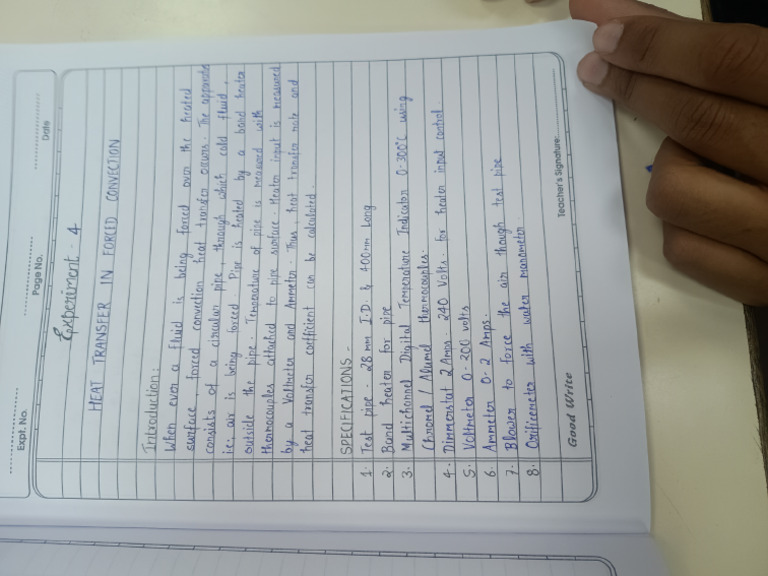 Expt. No.
Page No.
Date
Experiment - 4
HEAT TRANSFER IN FORCED CONVECTION
Introduction:
When ever a fluid is being forced over the heated
surface, forced convection heat transfer occurs. The apparate
consists of a circular pipe through which cold fluid,
ie; air is being forced Pipe is heated by a band heater
outside the pipe. Temperature of pipe is measured with
thermocouples attached to pipe surface. Heater input is measured
by a Voltmeter and Ammeter. Thus, heat transfer rate and
heat transfer coefficient can be calculated
SPECIFICATIONS -
1. Test pipe - 28 mm I.D. & 400 mm Long
2. Band heater for pipe
3. Multichannel Digital Temperature Indicator 0-300°C using
Chromel / Alumel thermocouples.
4. Dimmerstat 2 Amps. 240 Volts. for heater input control
5. Voltmeter 0-200 volts
6. Ammeter 0-2 Amps.
7. Blower to force the air though test pipe
8. Orificemeter with water manometer
Teacher's Signature:
Good Write